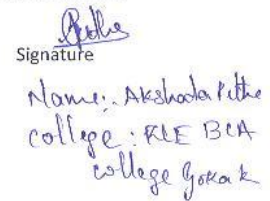 Signature
Name: Akshada Pithe
college: KLE BCA
college Gokak